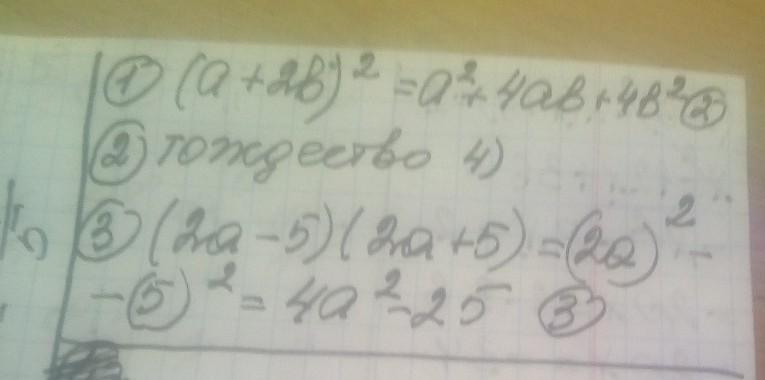 ① (a+2b)² = a²+4ab+4b² ②
② тождество 4)
③ (2a-5)(2a+5) = (2a)² -
- (5)² = 4a² - 25 ③